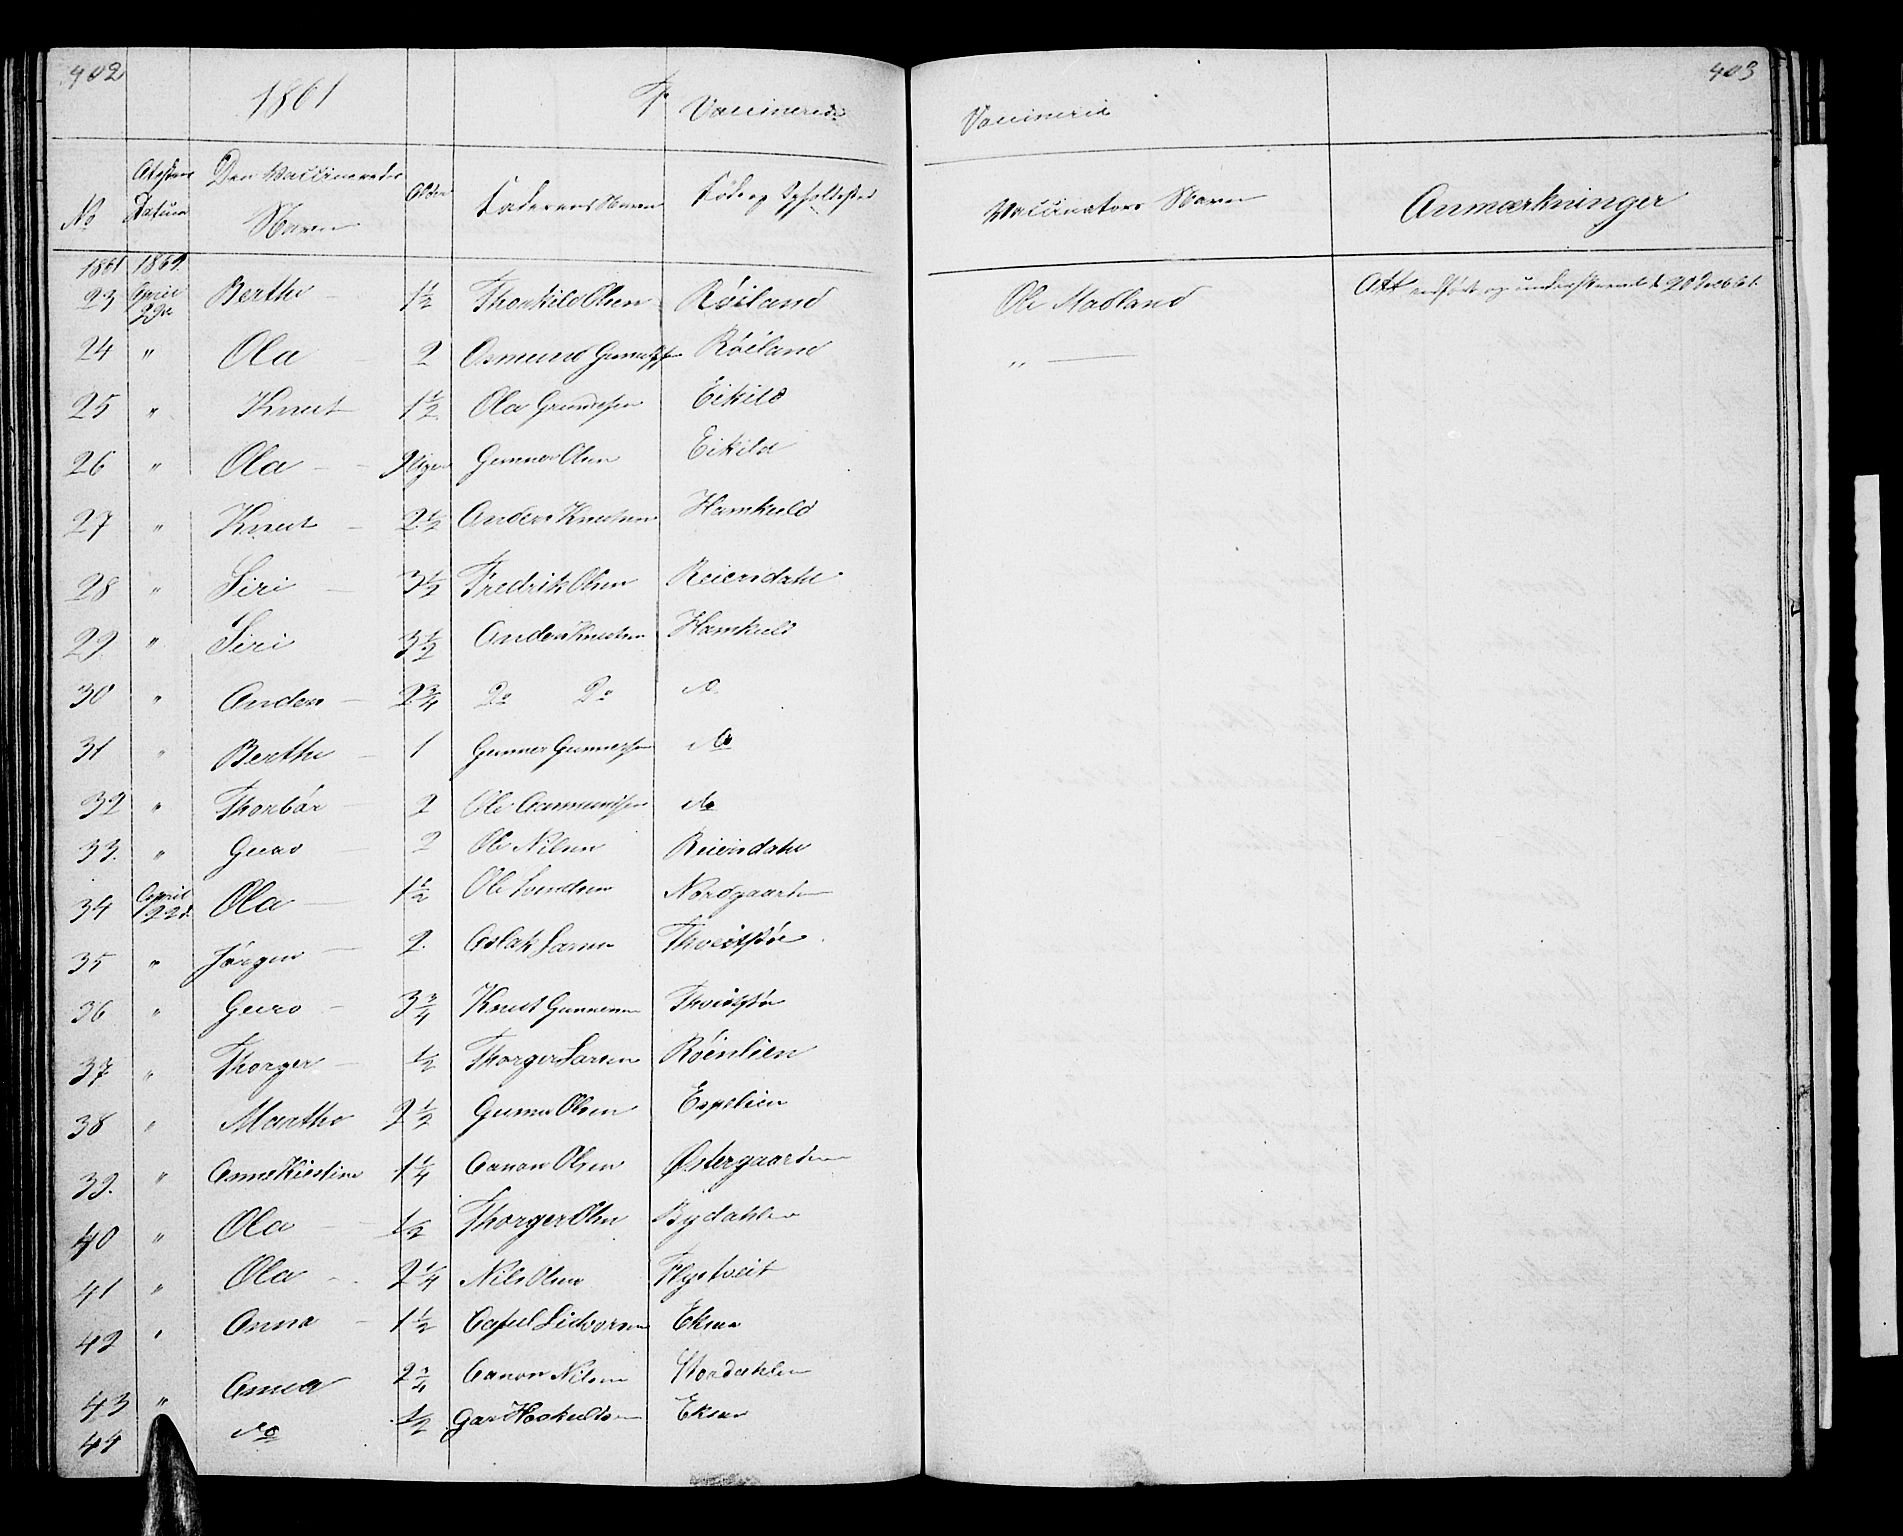 402
1861
F Vaccinerede
No
Attestens Datum
Den Vaccineredes Navn
Alder
Faderens Navn
Føde og Opholdssted
1861 1862
23 April 22de Berthe 1½ Thorkild Olsen Røiland
24 " Ola 2 Osmund Røiland
25 " Knut 1½ Ola Gunnersen Eikild
26 " Ola Uger Gunner Olsen Eikild
27 " Knut 2½ Anders Knutsen Homkild
28 " Siri 3½ Fredrik Olsen Reiersdahl
29 " Siri 3½ Anders Knutsen Homkild
30 " Anders 2¾ Do Do do
31 " Berthe 1 Gunner Gunnersen Mo
32 " Thorbør 2 Ole Aanundsen Mo
33 " Guro 2 Ole Nilsen Reiersdahl
34 April 22d Ola 1½ Ole Svendsen Nordgaarden
35 " Jørgen 2 Aslak Larsen
36 " Guro 3¾ Knut Gunnersen
37 " Thorger ½ Thorger Larsen Røenlien
38 " Marthe 2½ Gunner Olsen Espelien
39 " Anne Kirstine 1¼ Aanon Olsen Østergaarden
40 " Ola ½ Thorger Olsen Bydahlen
41 " Ola 2¼ Nils Olsen Flystveit
42 " Anna 1½ Sidvorsen Eksaa
43 " Anna 2¾ Aanon Nilsen Stordahlen
44 do ½ Hoskuldsen Eksaa
403
Vaccinerede
Vaccinators Navn
Anmærkninger
Ole Madland Att udført og underskrevet d 20 61.
" —